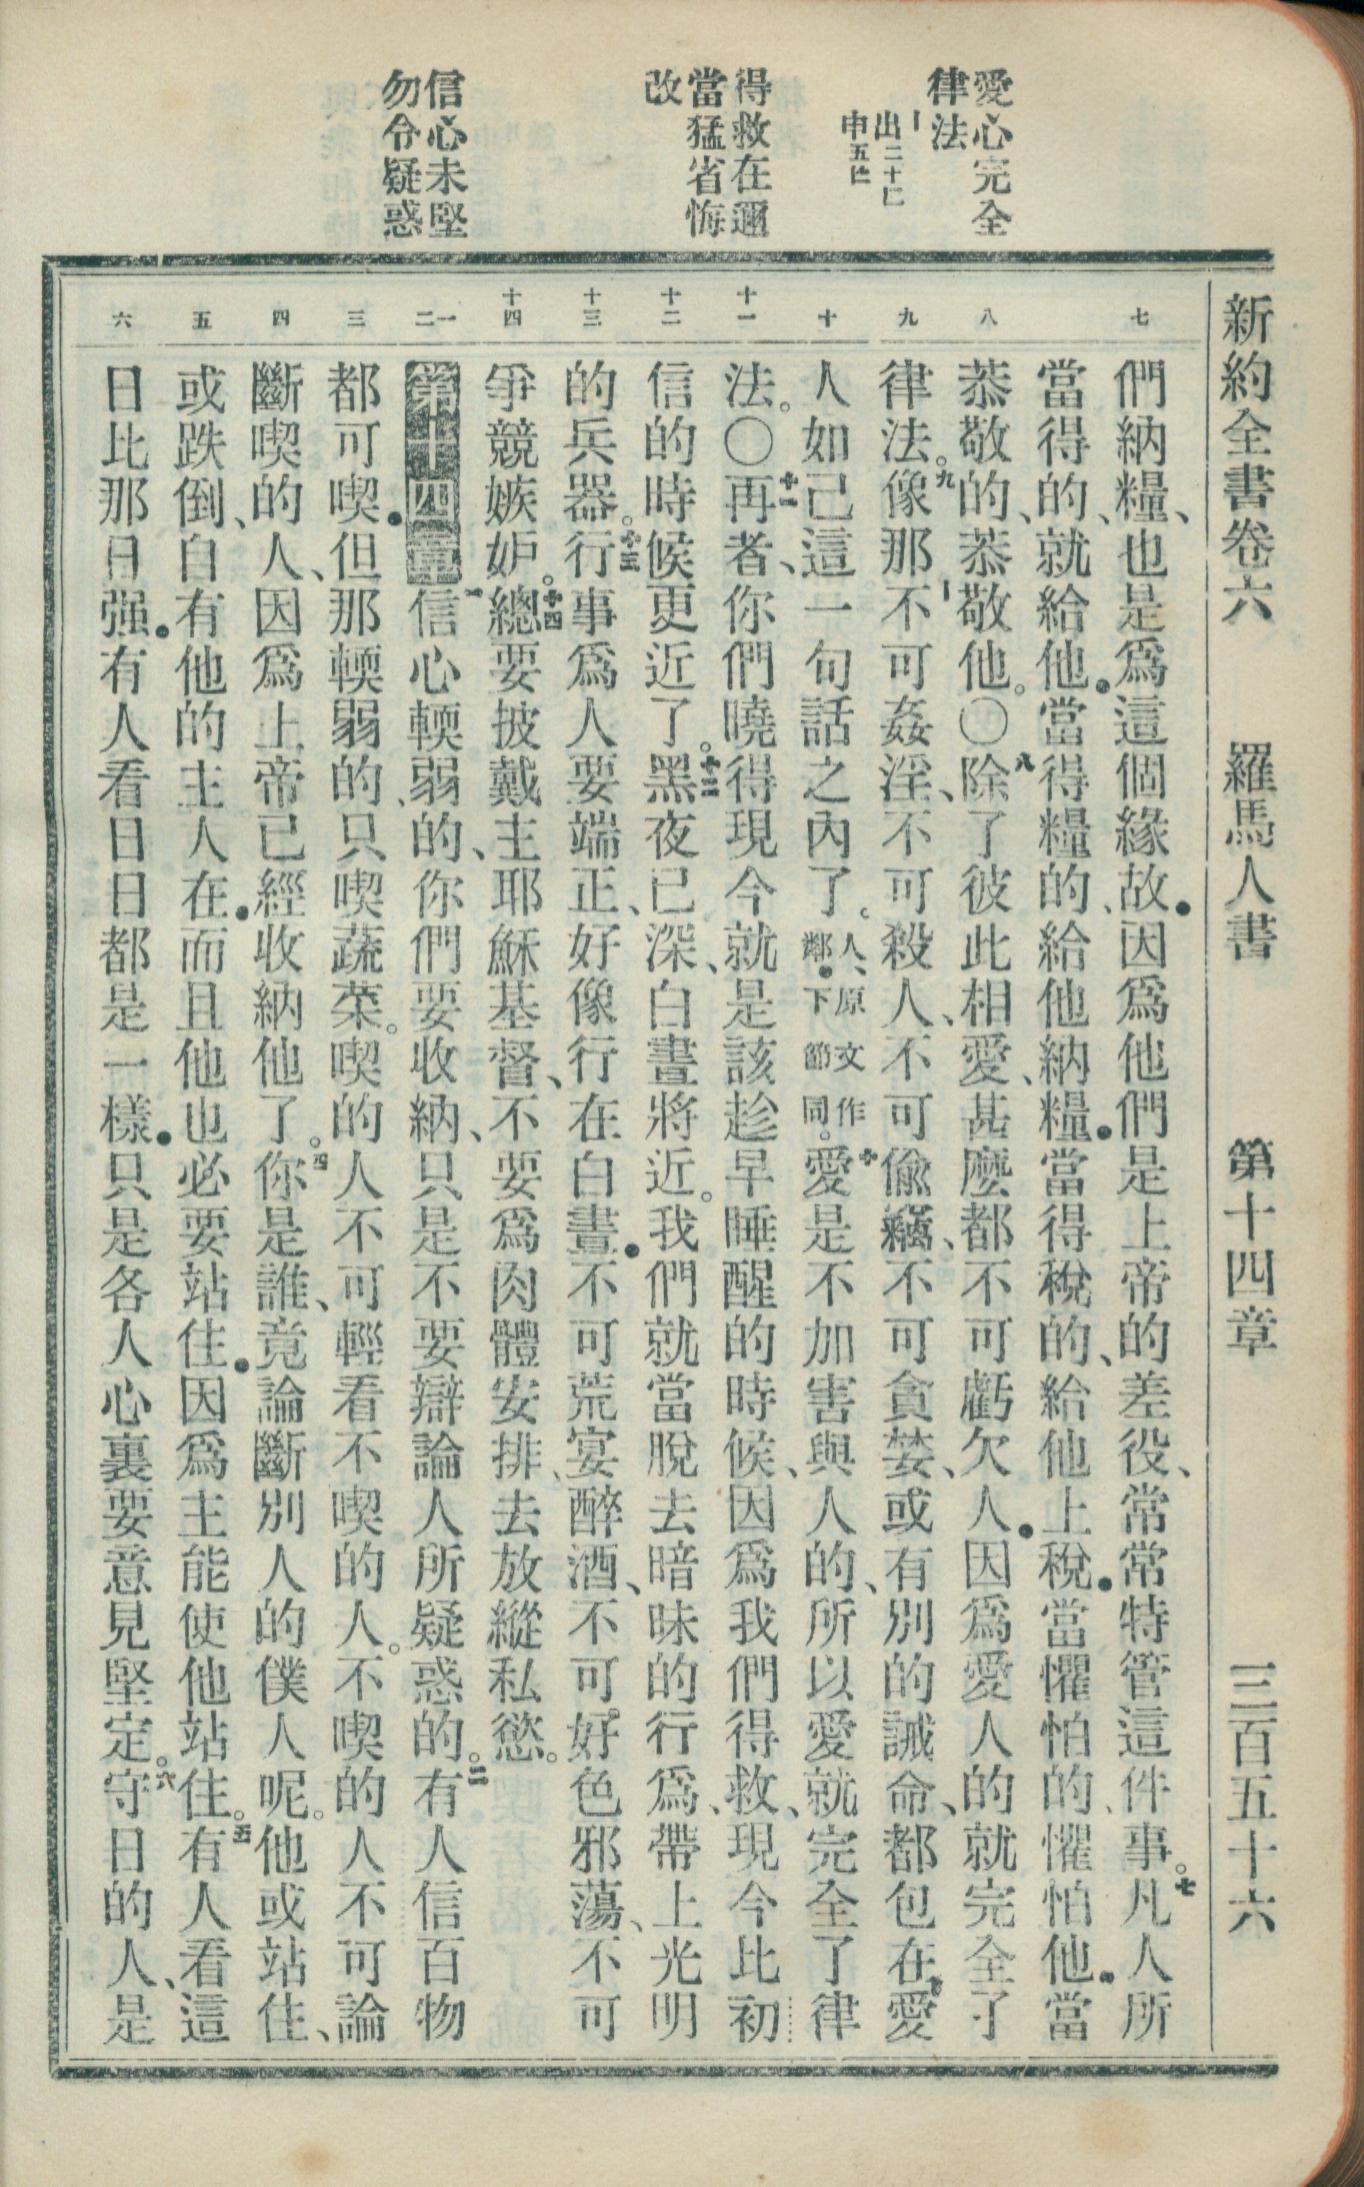 新約全書卷六 羅馬人書 第十四章 三百五十六
愛心完全
律法
出二十
申五
得救在邇
當猛省悔
改
信心未堅
勿令疑惑
七 八 九 十 十一 十二 十三 十四 一二 三 四 五 六
們納糧、也是爲這個緣故●因爲他們是上帝的差役、常常特管這件事。七凡人所
當得的、就給他●當得糧的、給他納糧●當得稅的、給他上稅●當懼怕的、懼怕他●當
恭敬的、恭敬他。〇八除了彼此相愛、甚麼都不可虧欠人●因爲愛人的就完全了
律法。九像那不可姦淫、不可殺人、不可偷竊、不可貪婪、或有別的誡命、都包在愛
人如己這一句話之內了。人、原文作鄰●下節同。十愛是不加害與人的、所以愛就完全了律
法。〇十一再者、你們曉得現今就是該趁早睡醒的時候、因爲我們得救、現今比初
信的時候更近了。十二黑夜已深、白晝將近。我們就當脫去暗昧的行爲、帶上光明
的兵器。十三行事爲人要端正、好像行在白晝●不可荒宴醉酒、不可好色邪蕩、不可
爭競嫉妒。十四總要披戴主耶穌基督、不要爲肉體安排、去放縱私慾。
第十四章 一信心輭弱的、你們要收納、只是不要辯論人所疑惑的。二有人信百物
都可喫●但那輭弱的、只喫蔬菜。喫的人不可輕看不喫的人。不喫的人不可論
斷喫的人、因爲上帝已經收納他了。四你是誰、竟論斷別人的僕人呢。他或站住、
或跌倒、自有他的主人在●而且他也必要站住●因爲主能使他站住。五有人看這
日比那日强●有人看日日都是一樣●只是各人心裏要意見堅定。六守日的人、是